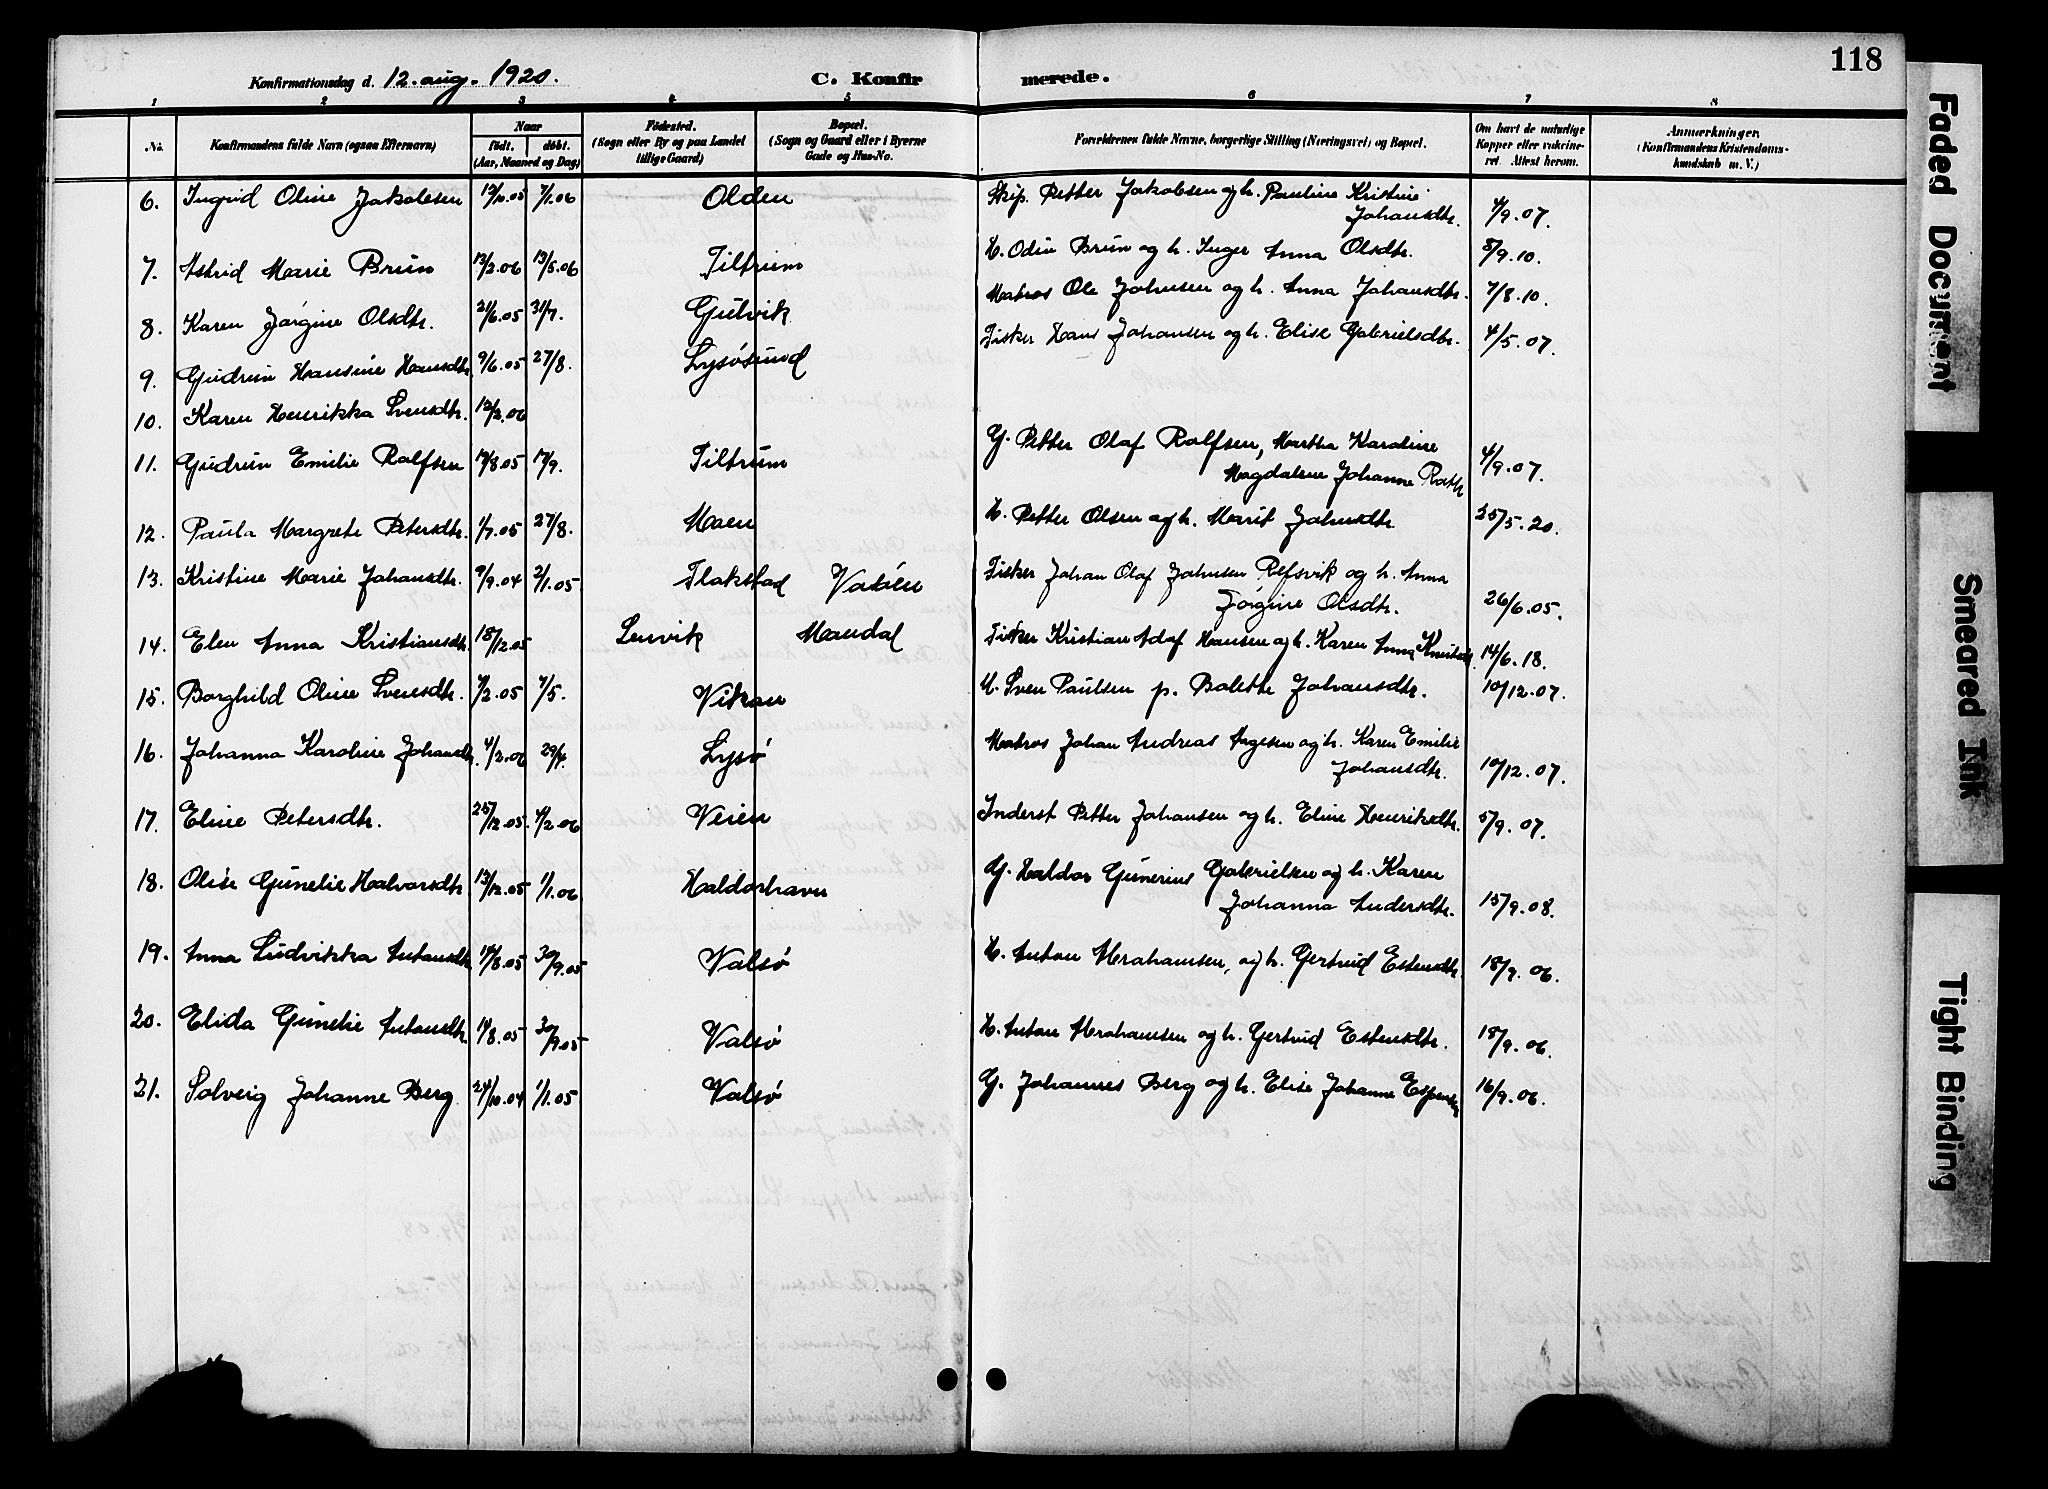 118
Konfirmationsdag d. 12. aug. 1920. C. Konfirmerede.
1 2 3 4 5 6 7 8
No. Konfirmandens fulde Navn (ogsaa Efternavn) Naar født. døbt. (Aar, Maaned og Dag) Fødested. (Sogn eller By og paa Landet tillige Gaard) Bopæl. (Sogn og Gaard eller i Byerne Gade og Hus-No. Forældrenes fulde Navne, borgerlige Stilling (Næringsvei) og Bopæl. Om havt de naturlige Kopper eller vakcineret. Attest herom. Anmærkninger. (Konfirmandens Kristendomskundskab m. V.)
6. Ingrid Oline Jakobsen 13/10.05 7/1.06 Olden Skip. Petter Jakobsen og h. Pauline Kristine
Johansdtr. 4/9.07.
7. Astrid Marie Brun 13/2.06 13/5.06 Tiltrum H. Odin Brun og h. Inger Anna Olsdtr. 8/9.10.
8. Karen Jørgine Olsdtr. 21/6.05 31/7. Gulvik Matros Ole Johnsen og h. Anna Johansdtr. 7/8.10.
9. Gudrun Hansine Hansdtr. 9/6.05 27/8. Lysøsund Fisker Hans Johansen og h. Elise Gabrielsdtr. 4/5.07.
10. Karen Henrikka Svensdtr. 12/2.06
11. Gudrun Emilie Rolfsen 17/8.05 17/9. Tiltrum G. Petter Olaf Rolfsen, Martha Karoline
Magdalene Johanne 4/9.07.
12. Paula Margrete Petersdtr. 1/7.05 27/8. Moen H. Petter Olsen og h. Marit Johnsdtr. 25/5.20.
13. Kristine Marie Johansdtr. 9/9.04 2/1.05 Flakstad Fisker Johan Olaf Johnsen og h. Anna
Jørgine Olsdtr. 26/6.05.
14. Elen Anna Kristiansdtr. 18/12.05 Lenvik Mandal Fisker Kristian Adolf Hansen og h. Karen Anna 14/6.18.
15. Borghild Oline Svensdtr. 7/2.05 7/5. Vikan U. Sven Paulsen p. Bolette Johansdtr. 10/12.07.
16. Johanna Karoline Johansdtr. 4/2.06 29/4. Lysø Matros Johan Andreas Aagesen og h. Karen Emilie
Johansdtr. 10/12.07.
17. Eline Petersdtr. 25/12.05. 4/2.06 Veien Inderst Petter Johansen og h. Eline Henriksdtr. 5/9.07.
18. Olise Gunelie Halvorsdtr. 13/12.05 1/1.06 Haldorhavn G. Haldor Gunerius Gabrielsen og h. Karen
Johanna Andersdtr. 15/9.08.
19. Anna Ludvikka Antonsdtr. 14/8.05 30/9.05 Valsø H. Anton Abrahamsen, og h. Gertrud Estensdtr. 18/9.06.
20. Elida Gunelie Antonsdtr. 14/8.05 30/9.05 Valsø H. Anton Abrahamsen og h. Gertrud Estensdtr. 18/9.06.
21. Solveig Johanne Berg 24/10.04 1/1.05 Valsø G. Johannes Berg og h. Elise Johanne 16/9.06.
Faded Document
Smeared Ink
Tight Binding